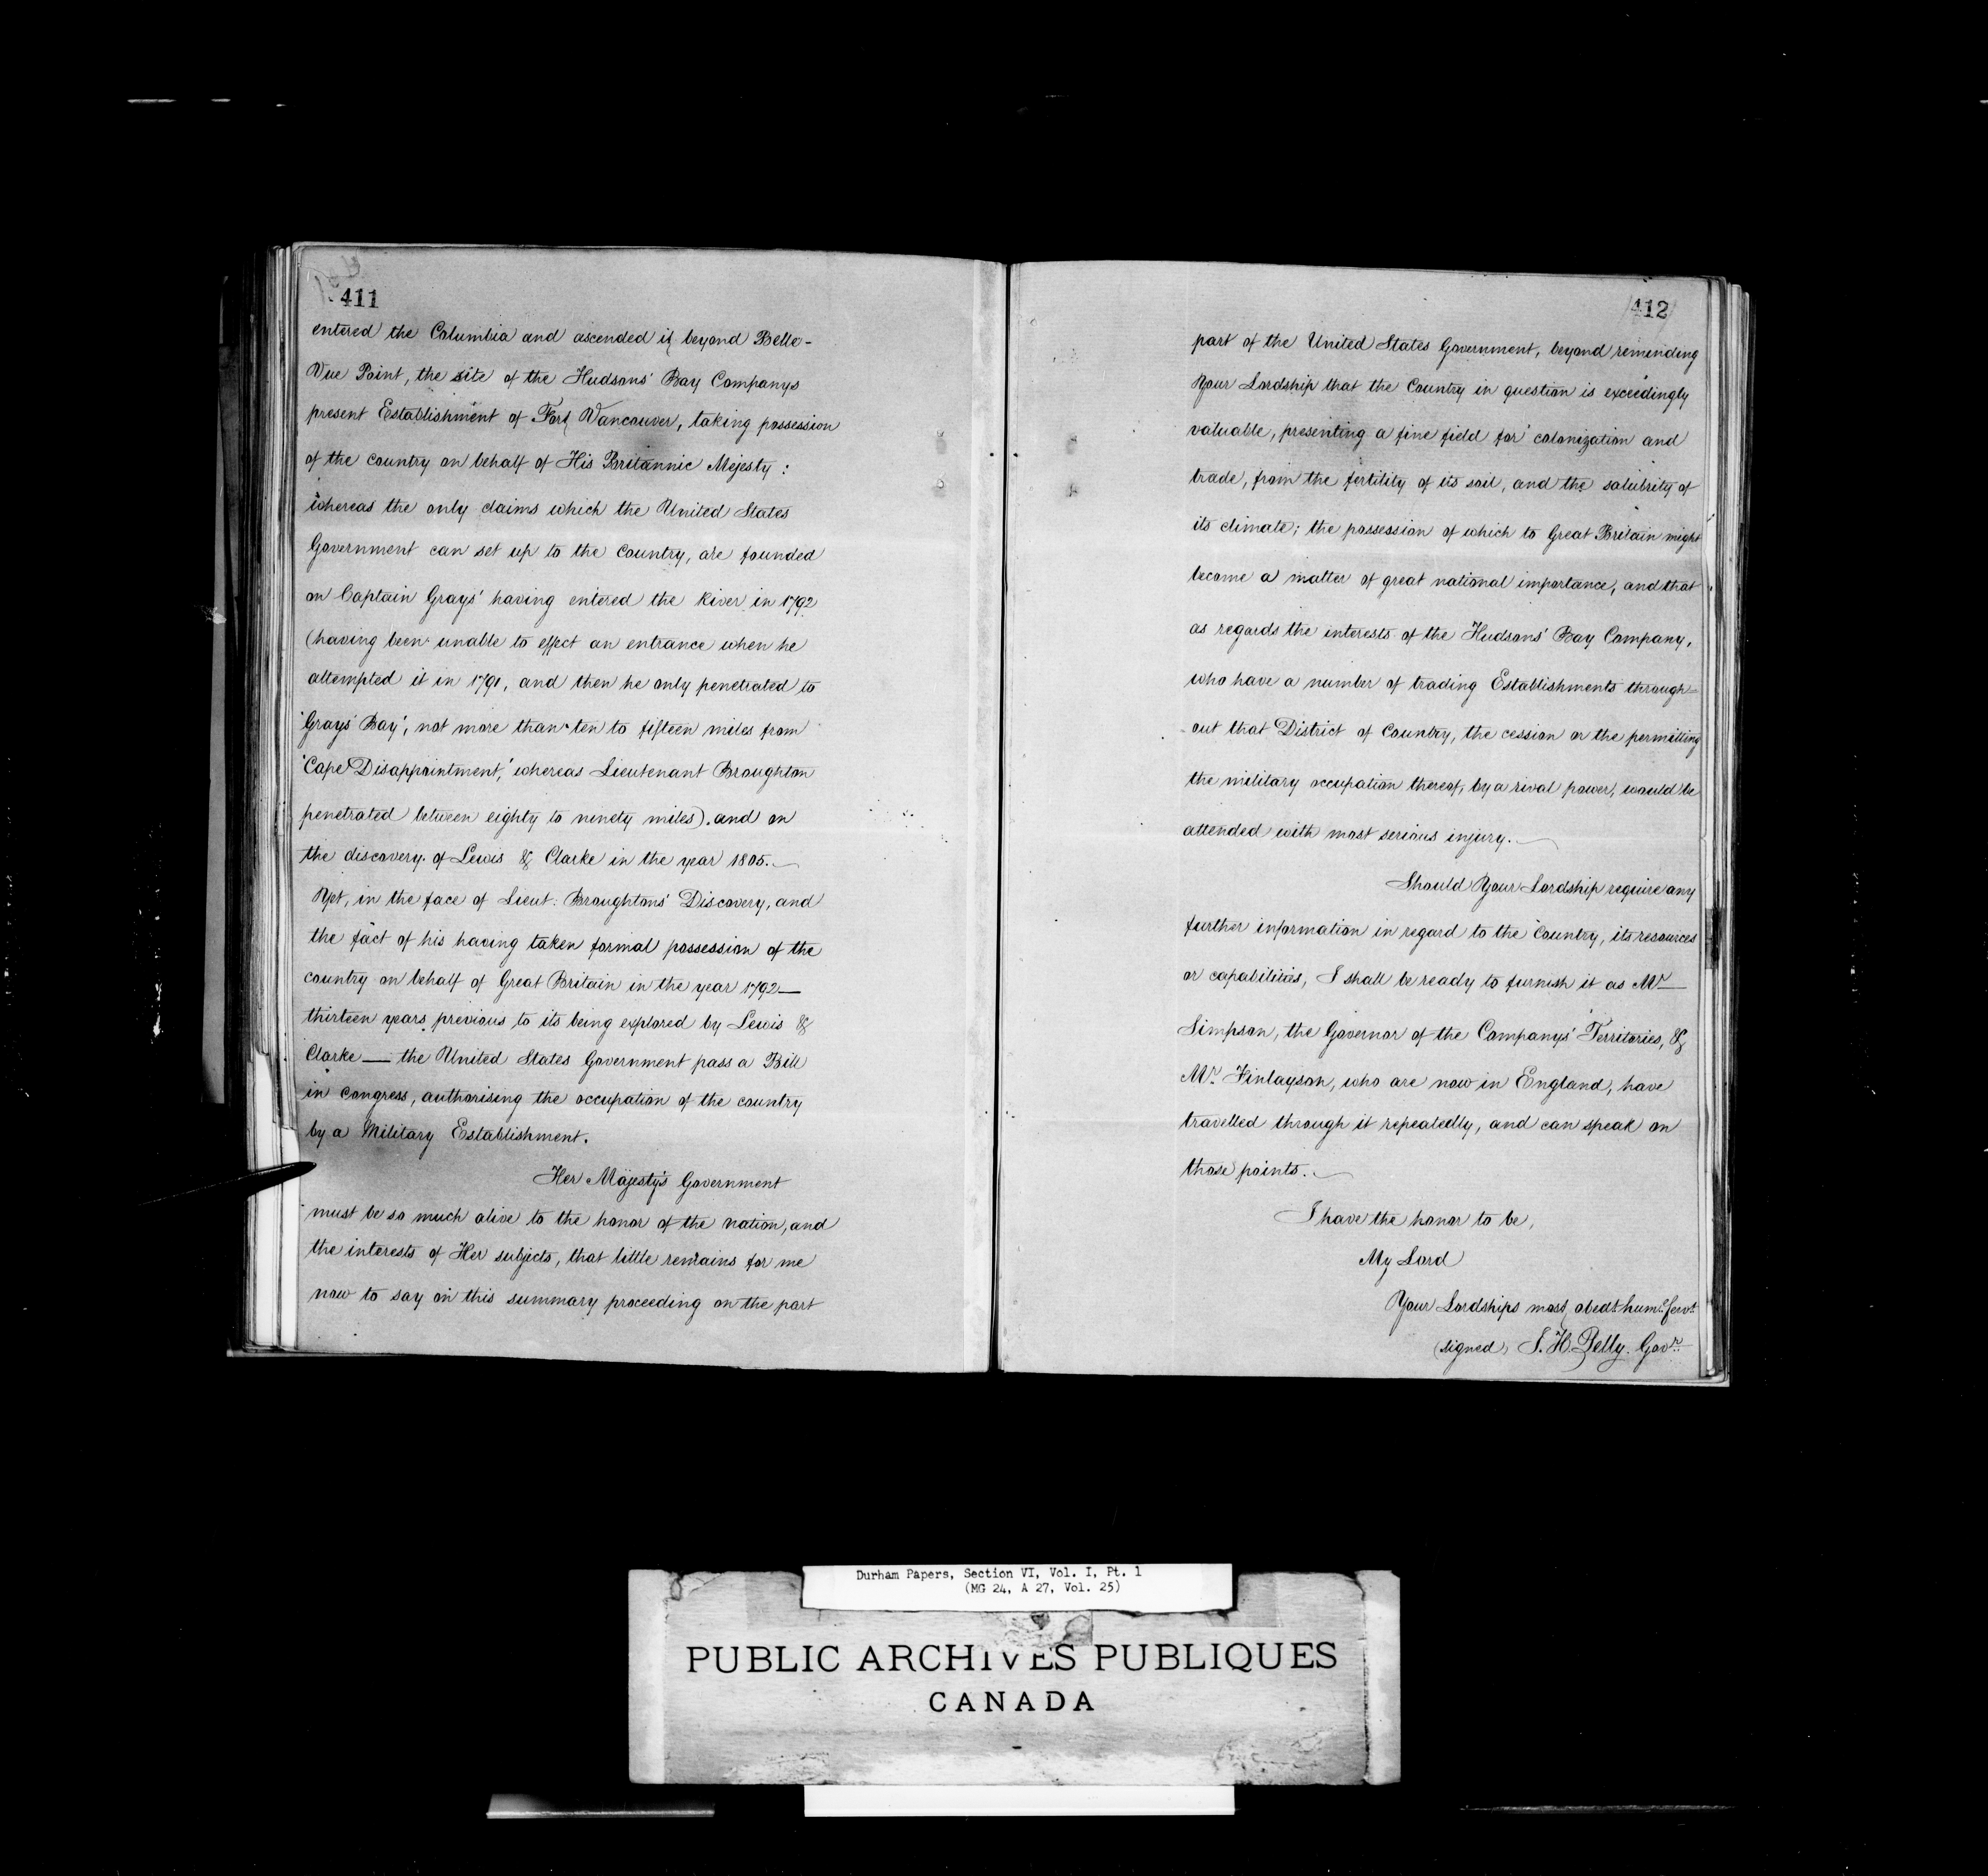 411
entered the Columbia and ascended it beyond Belle-
Vue Point, the site of the Hudsons' Bay Companys
present Establishment of Fort Vancouver, taking possession
of the country on behalf of His Britannic Mejesty:
whereas the only claims which the United States
Government can set up to the Country, are founded
on Captain Grays' having entered the River in 1792
(having been unable to effect an entrance when he
attempted it in 1791, and then he only penetrated to
'Grays' Bay', not more than ten to fifteen miles from
'Cape Disappointment,' whereas Lieutenant Broughton
penetrated between eighty to ninety miles). and on
the discovery of Lewis & Clarke in the year 1805.
Yet, in the face of Lieut: Broughtons' Discovery, and
the fact of his having taken formal possession of the
country on behalf of Great Britain in the year 1792—
thirteen years previous to its being explored by Lewis &
Clarke — the United States Government pass a Bill
in Congress, authorising the occupation of the country
by a Military Establishment.
Her Majesty's Government
must be so much alive to the honor of the nation, and
the interests of Her subjects, that little remains for me
now to say on this summary proceeding on the part
412
part of the United States Government, beyond reminding
Your Lordship that the Country in question is exceedingly
valuable, presenting a fine field for colonization and
trade, from the fertility of its soil, and the salubrity of
its climate; the possession of which to Great Britain might
become a matter of great national importance, and that
as regards the interests of the Hudsons' Bay Company,
who have a number of trading Establishments through-
out that District of Country, the cession or the permitting
the military occupation thereof, by a rival power, would be
attended with most serious injury.
Should Your Lordship require any
further information in regard to the Country, its resources
or capabilities, I shall be ready to furnish it as Mr
Simpson, the Governor of the Companys' Territories, &
Mr. Finlayson, who are now in England, have
travelled through it repeatedly, and can speak on
those points.
I have the honor to be,
My Lord
Your Lordships most obedt humle servt
(signed) J. H. Pelly. Govr.
Durham Papers, Section VI, Vol. I, Pt. 1
(MG 24, A 27, Vol. 25)
PUBLIC ARCHIVES PUBLIQUES
CANADA